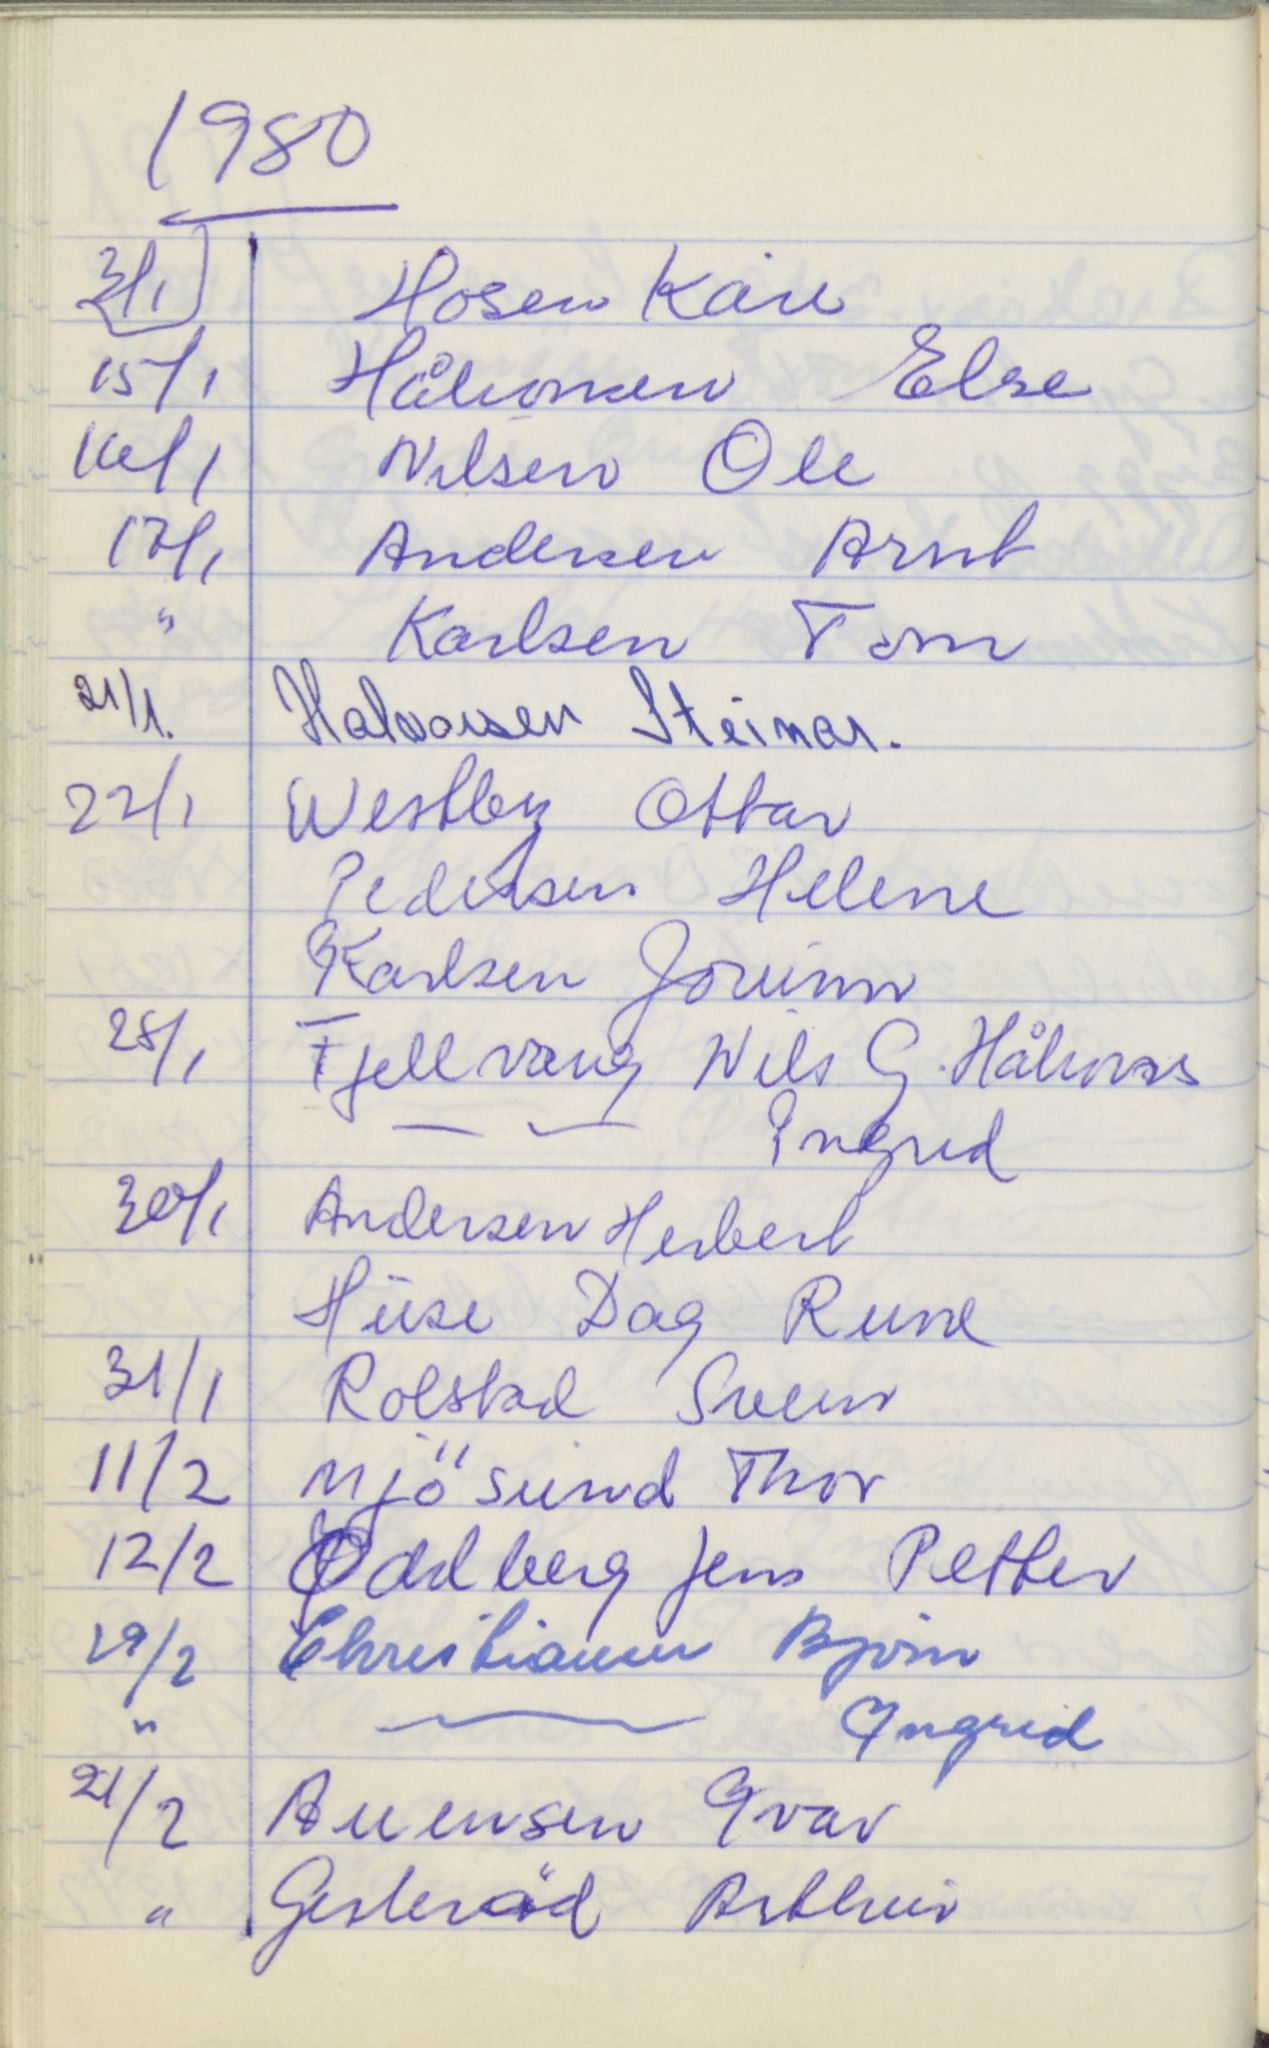 1980
3/1 Hosen Kåre
15/1 Håkonsen Else
16/1 Nilsen Ole
17/1 Andersen Arnt
" Karlsen Tom
21/1. Halvorsen Steinar.
22/1 Westby Ottar
Pedersen Helene
Karlsen Jorunn
28/1 Fjellvang Nils G. Håkonss
— Ingrid
30/1 Andersen Herbert
Huse Dag Rune
31/1 Rolstad Svein
11/2 Mjösund Thor
12/2 Oddberg Jens Petter
29/2 Christiansen Bjørn
" — Ingrid
21/2 Auensen Ivar
" Gjesteröd Arthur